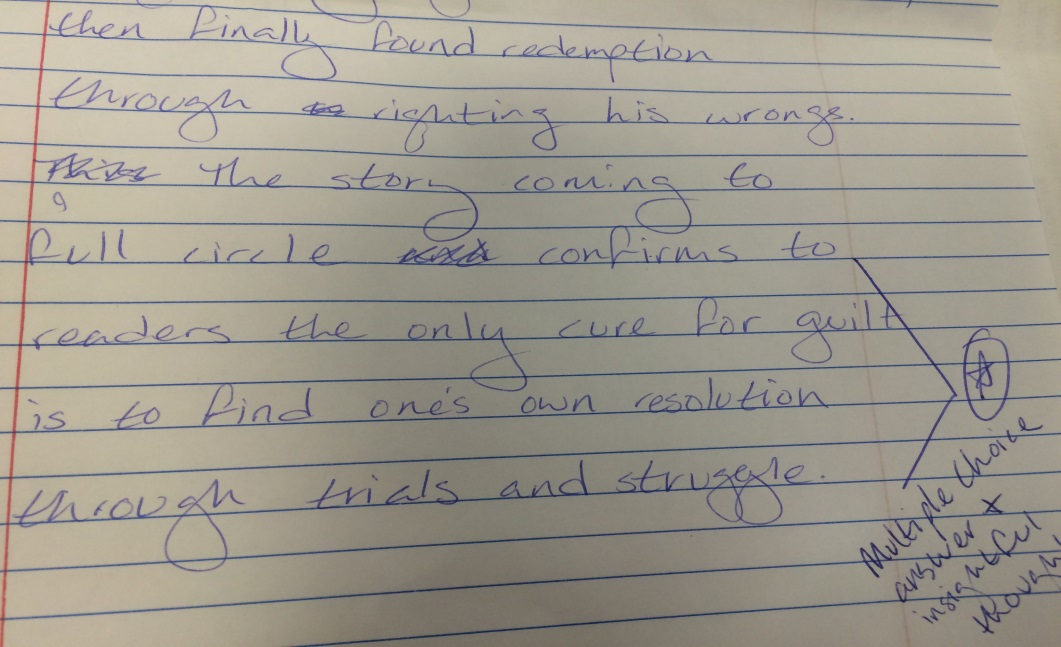 then finally found redemption
through righting his wrongs.
The story coming to
full circle confirms to
readers the only cure for guilt
is to find one's own resolution
through trials and struggle.
Multiple Choice
answer +
insightful
thought!